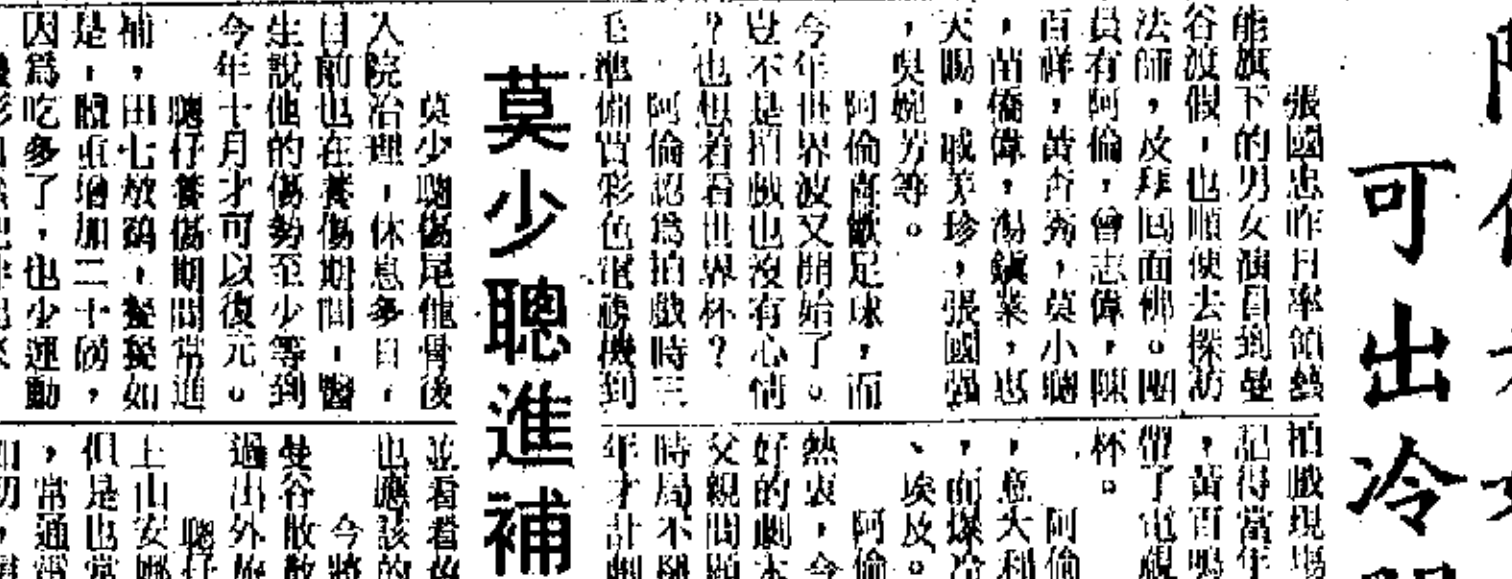 可出冷
張國忠昨日率領藝
能旗下的男女演員到曼
谷渡假，也順便去探訪
法師，及拜四面佛。團
員有阿倫，曾志偉，陳
百祥，黃杏秀，莫小聰
，苗僑偉，湯鎮業，惠
天賜，戚美珍，張國强
，吳婉芳等。
阿倫喜歡足球，而
今年世界波又開始了。
豈不是拍戲也沒有心情
？也想着看世界杯？
阿倫認爲拍戲時三
毛準備買彩色電視機到
拍戲現場
記得當年
，黃百鳴
帶了電視
杯。
阿倫
，意大利
，而爆冷
、埃及。
阿倫
熱衷，今
好的劇本
父親問題
時局不
年才計劃
莫少聰進補
莫少聰傷尾龍骨後
入院治理，休息多日，
目前也在養傷期間，醫
生說他的傷勢至少等到
今年十月才可以復元。
聰仔養傷期間常進
補，田七炖鷄，髮髮如
是，體重增加二十磅，
因爲吃多了，也少運動
並看看
也應該的
今將
曼谷散散
過出外旅
聰仔
上山安
但是也常
，常通常